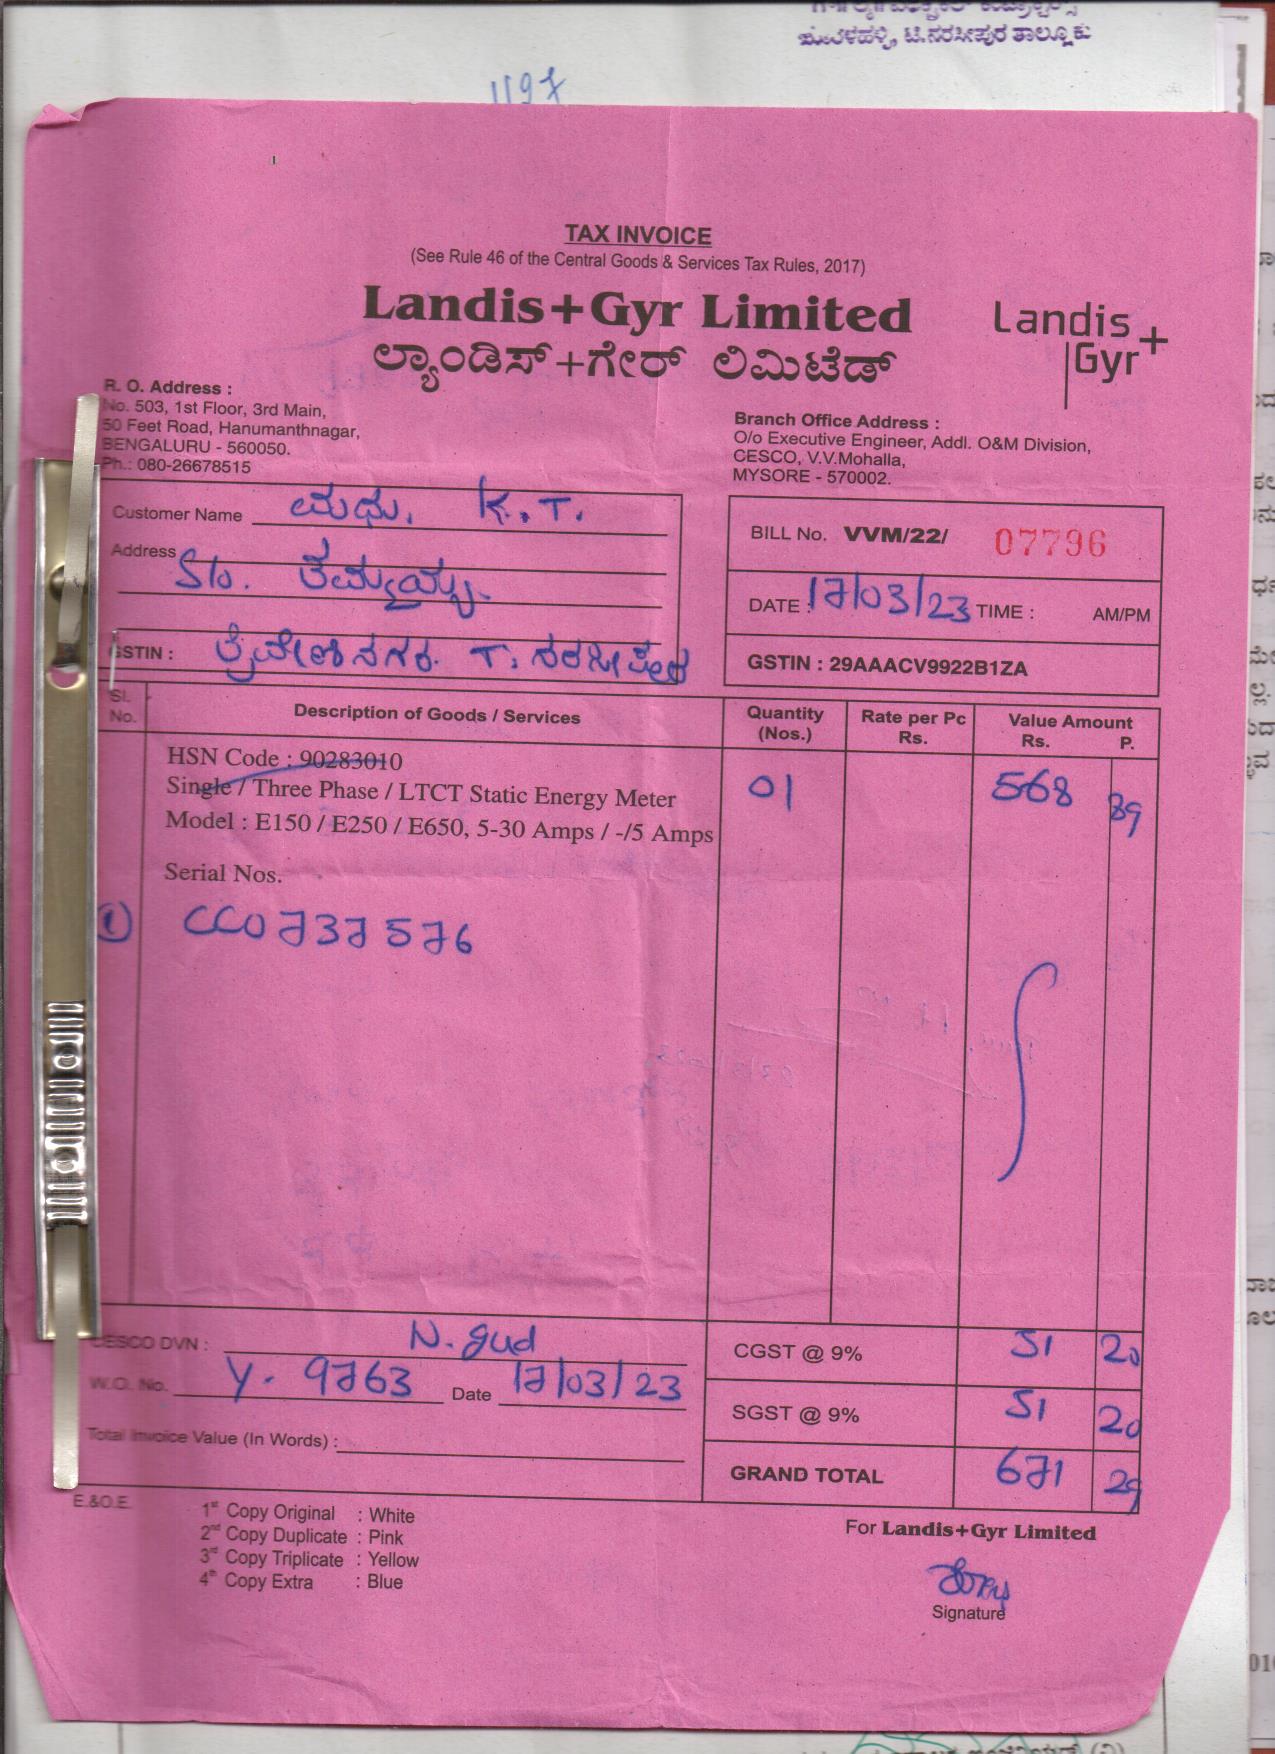 ಟಿ.ನರಸೀಪುರ ತಾಲ್ಲೂಕು
1197
TAX INVOICE
(See Rule 46 of the Central Goods & Services Tax Rules, 2017)
Landis+Gyr Limited
ಲ್ಯಾಂಡಿಸ್+ಗೇರ್ ಲಿಮಿಟೆಡ್
Landis+
Gyr
R. O. Address :
No. 503, 1st Floor, 3rd Main,
50 Feet Road, Hanumanthnagar,
BENGALURU - 560050.
Ph.: 080-26678515
Branch Office Address :
O/o Executive Engineer, Addl. O&M Division,
CESCO, V.V.Mohalla,
MYSORE - 570002.
Customer Name ಮಧು. K.T.
Address S/o. ತಮ್ಮಯ್ಯ.
GSTIN : ತ್ರಿವೇಣಿನಗರ. T. ನರಸೀಪುರ
BILL No. VVM/22/ 07796
DATE : 17/03/23 TIME : AM/PM
GSTIN : 29AAACV9922B1ZA
Sl. No. Description of Goods / Services Quantity (Nos.) Rate per Pc Rs. Value Amount Rs. P.
HSN Code : 90283010
Single / Three Phase / LTCT Static Energy Meter 01 568 89
Model : E150 / E250 / E650, 5-30 Amps / -/5 Amps
Serial Nos.
1) CC0737576
CESCO DVN : N. gud
W.O. No. Y. 9763 Date 17/03/23
Total Invoice Value (In Words) :
CGST @ 9% 51 20
SGST @ 9% 51 20
GRAND TOTAL 671 29
E.&O.E.
1st Copy Original : White
2nd Copy Duplicate : Pink
3rd Copy Triplicate : Yellow
4th Copy Extra : Blue
For Landis+Gyr Limited
Signature